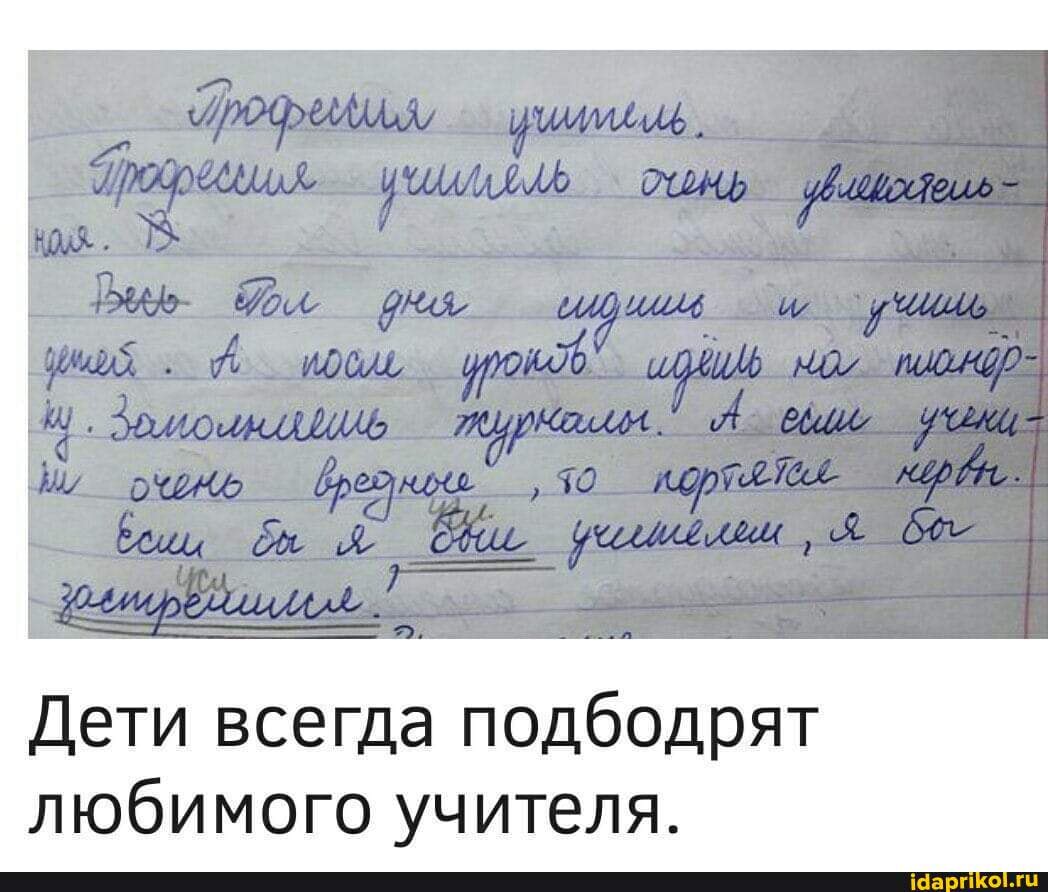 Профессия учитель.
Профессия учитель очень увлекатель-
ная. В
Весь Пол дня сидишь и учишь
детей. А после уроков идёшь на планёр-
ку. Заполняешь журналы. А если учени-
ки очень вредные, то портятся нервы.
усл.
Если бы я был учителем, я бы
усл.
застрелился.
Дети всегда подбодрят
любимого учителя.
idaprikol.ru